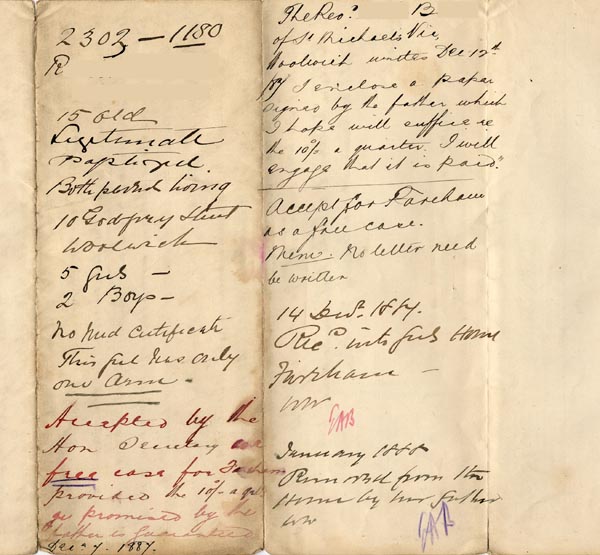 2302 – 1180
R
15 old
Legitimate
Baptized.
Both parents living
10 Godfrey Street
Woolwich
5 Girls –
2 Boys –
No Med Certificate
This girl has only
one Arm.
Accepted by the
Hon Secretary as a
free case for Fareham
provided the 10/- a
promised by the
father is guaranteed
Dec. 7. 1887.
The Revd. B
of St Michaels Vic
Woolwich writes Dec 12th
/87 I enclose a paper
signed by the father which
I hope will suffice re
the 10/- a quarter. I will
engage that it is paid".
Accept for Fareham
as a free case.
Mem. No letter need
be written
14 Decr. 1887.
Recd. into Girls Home
Fareham –
WW
EAB
January 1888
Removed from the
Home by her father
WW
EAB